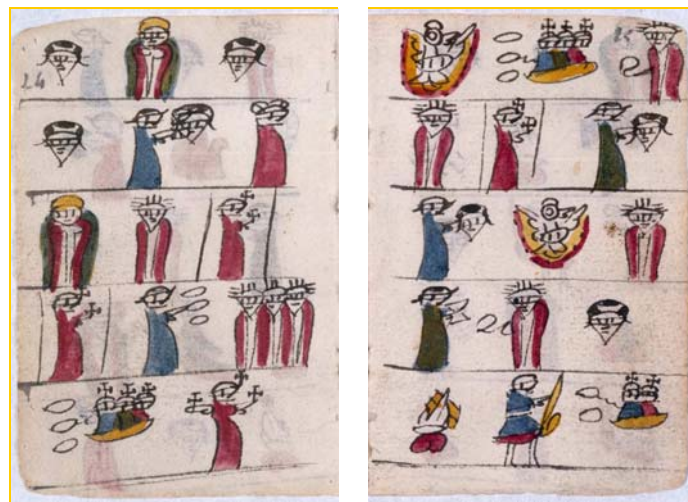 24
25